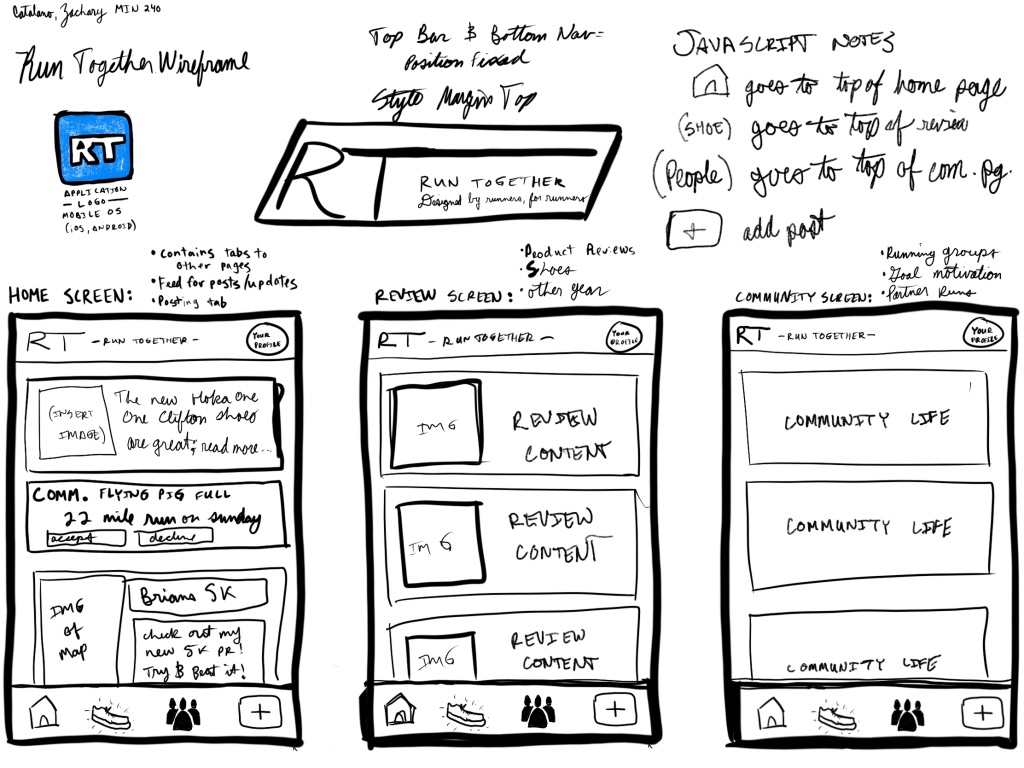 Catalano, Zachary MIN 240
Run Together Wireframe
RT
APPLICATION
— LOGO —
MOBILE OS
(iOS, ANDROID)
Top Bar & Bottom Nav =
Position Fixed
Style Margins Top
RT
RUN TOGETHER
Designed by runners, for runners
JAVASCRIPT NOTES
goes to top of home page
(SHOE) goes to top of review
(People) goes to top of com. pg.
+ add post
HOME SCREEN:
• Contains tabs to
other pages
• Feed for posts/updates
• Posting tab
RT - RUN TOGETHER -
YOUR
PROFILE
(INSERT
IMAGE)
The new Hoka One
One Clifton shoes
are great; read more...
COMM. FLYING PIG FULL
22 mile run on sunday
accept decline
IMG
of
Map
Brians 5K
check out my
new 5K PR!
Try & Beat it!
+
REVIEW SCREEN:
• Product Reviews
• Shoes
• other gear
RT - RUN TOGETHER -
YOUR
PROFILE
IMG
REVIEW
CONTENT
IMG
REVIEW
CONTENT
IMG
REVIEW
CONTENT
+
COMMUNITY SCREEN:
• Running groups
• Goal motivation
• Partner Runs
RT - RUN TOGETHER -
YOUR
PROFILE
COMMUNITY LIFE
COMMUNITY LIFE
COMMUNITY LIFE
+